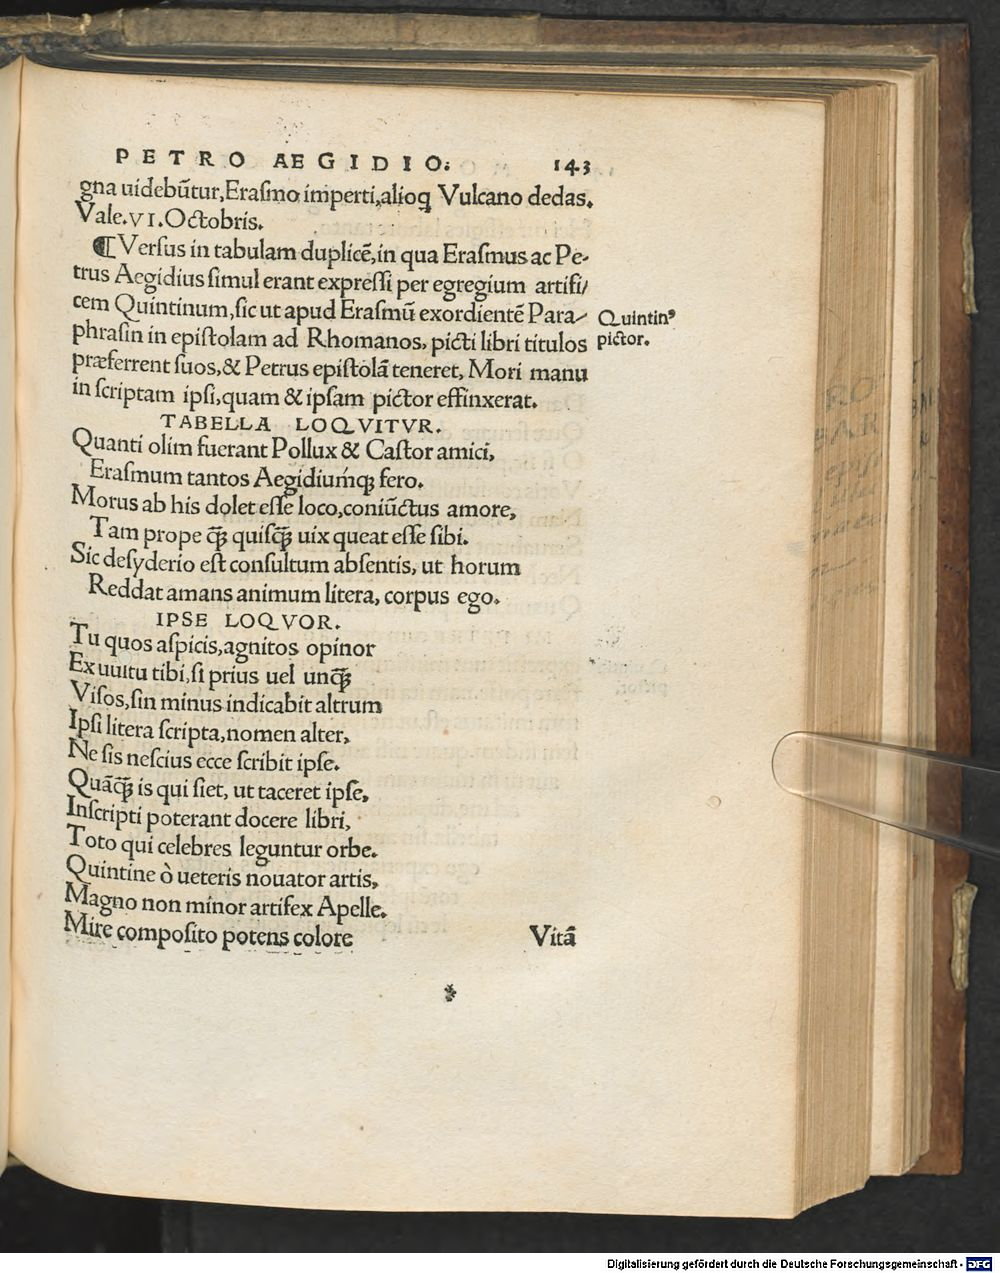 PETRO AEGIDIO. 143
gna uidebũtur, Eraſmo imperti, alioq̨ Vulcano dedas.
Vale. VI. Octobris.
¶ Verſus in tabulam duplicẽ, in qua Eraſmus ac Pe-
trus Aegidius ſimul erant expreſſi per egregium artifi/
cem Quintinum, ſic ut apud Eraſmũ exordientẽ Para/
phraſin in epiſtolam ad Rhomanos, picti libri titulos
præferrent ſuos, & Petrus epiſtolã teneret, Mori manu
in ſcriptam ipſi, quam & ipſam pictor effinxerat.
Quintinꝰ
pictor.
TABELLA LOQVITVR.
Quanti olim fuerant Pollux & Caſtor amici,
Eraſmum tantos Aegidiumq́ꝫ fero.
Morus ab his dolet eſſe loco, coniũctus amore,
Tam prope q̃ꝫ quiſq̃ꝫ uix queat eſſe ſibi.
Sic deſyderio eſt conſultum abſentis, ut horum
Reddat amans animum litera, corpus ego.
IPSE LOQVOR.
Tu quos aſpicis, agnitos opinor
Ex uultu tibi, ſi prius uel unq̃ꝫ
Viſos, ſin minus indicabit altrum
Ipſi litera ſcripta, nomen alter,
Ne ſis neſcius ecce ſcribit ipſe.
Quãq̃ꝫ is qui ſiet, ut taceret ipſe,
Inſcripti poterant docere libri,
Toto qui celebres leguntur orbe.
Quintine ò ueteris nouator artis,
Magno non minor artifex Apelle.
Mire compoſito potens colore
Vitã
*
Digitalisierung gefördert durch die Deutsche Forschungsgemeinschaft - DFG